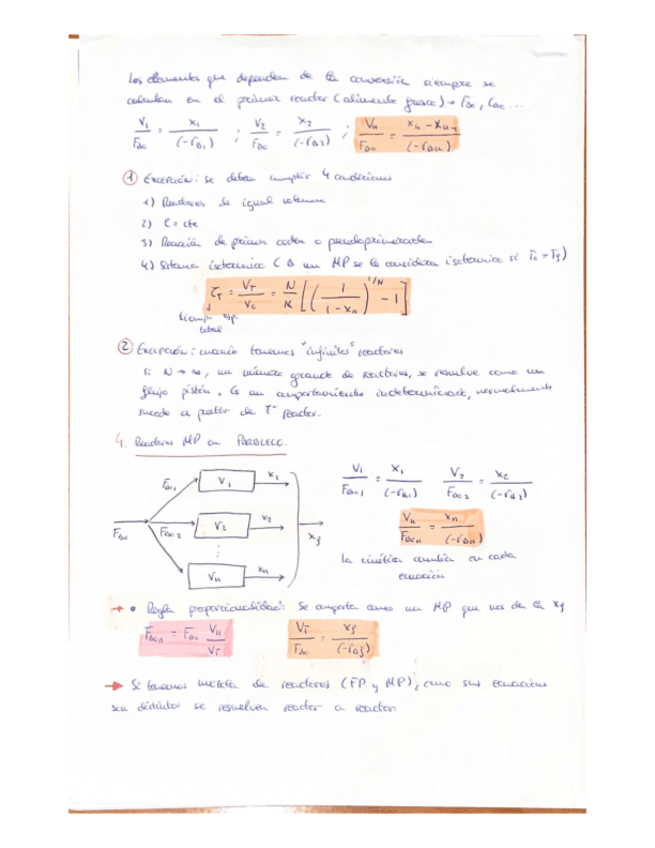 Los elementos que dependen de la conversión siempre se
calculan en el primer reactor (alimento fresco) → F_A0, C_A0 ...
V_1/F_A0 = x_1/(-r_A1) ; V_2/F_A0 = x_2/(-r_A2) ; V_n/F_A0 = x_n - x_n-1/(-r_An)
① EXCEPCIÓN: se deben cumplir 4 condiciones
1) Reactores de igual volumen
2) ε = cte
3) Reacción de primer orden o pseudoprimerorden
4) Sistema isotérmico ( un MP se le considera isotérmico si T_0 = T_f)
τ_T = V_T/V_0 = N/K [(1/(1-x_n))^(1/N) - 1]
tiempo esp.
total
② Excepción: cuando tenemos "infinitos" reactores
si N → ∞, un número grande de reactores, se resuelve como un
flujo pistón. Es un comportamiento indeterminado, normalmente
sucede a partir de 7º reactor.
4. Reactores MP en PARALELO.
F_A0 F_A01 V_1 x_1
F_A02 V_2 x_2
⋮
V_n x_n
x_f
V_1/F_A01 = x_1/(-r_A1) V_2/F_A02 = x_2/(-r_A2)
V_n/F_A0n = x_n/(-r_An)
la cinética cambia en cada
ecuación
→ • Regla proporcionalidad: Se comporta como un MP que nos da la x_f
F_A0n = F_A0 V_n/V_T V_T/F_A0 = x_f/(-r_Af)
→ Si tenemos mezcla de reactores (FP y MP), como sus ecuaciones
son distintas se resuelven reactor a reactor.